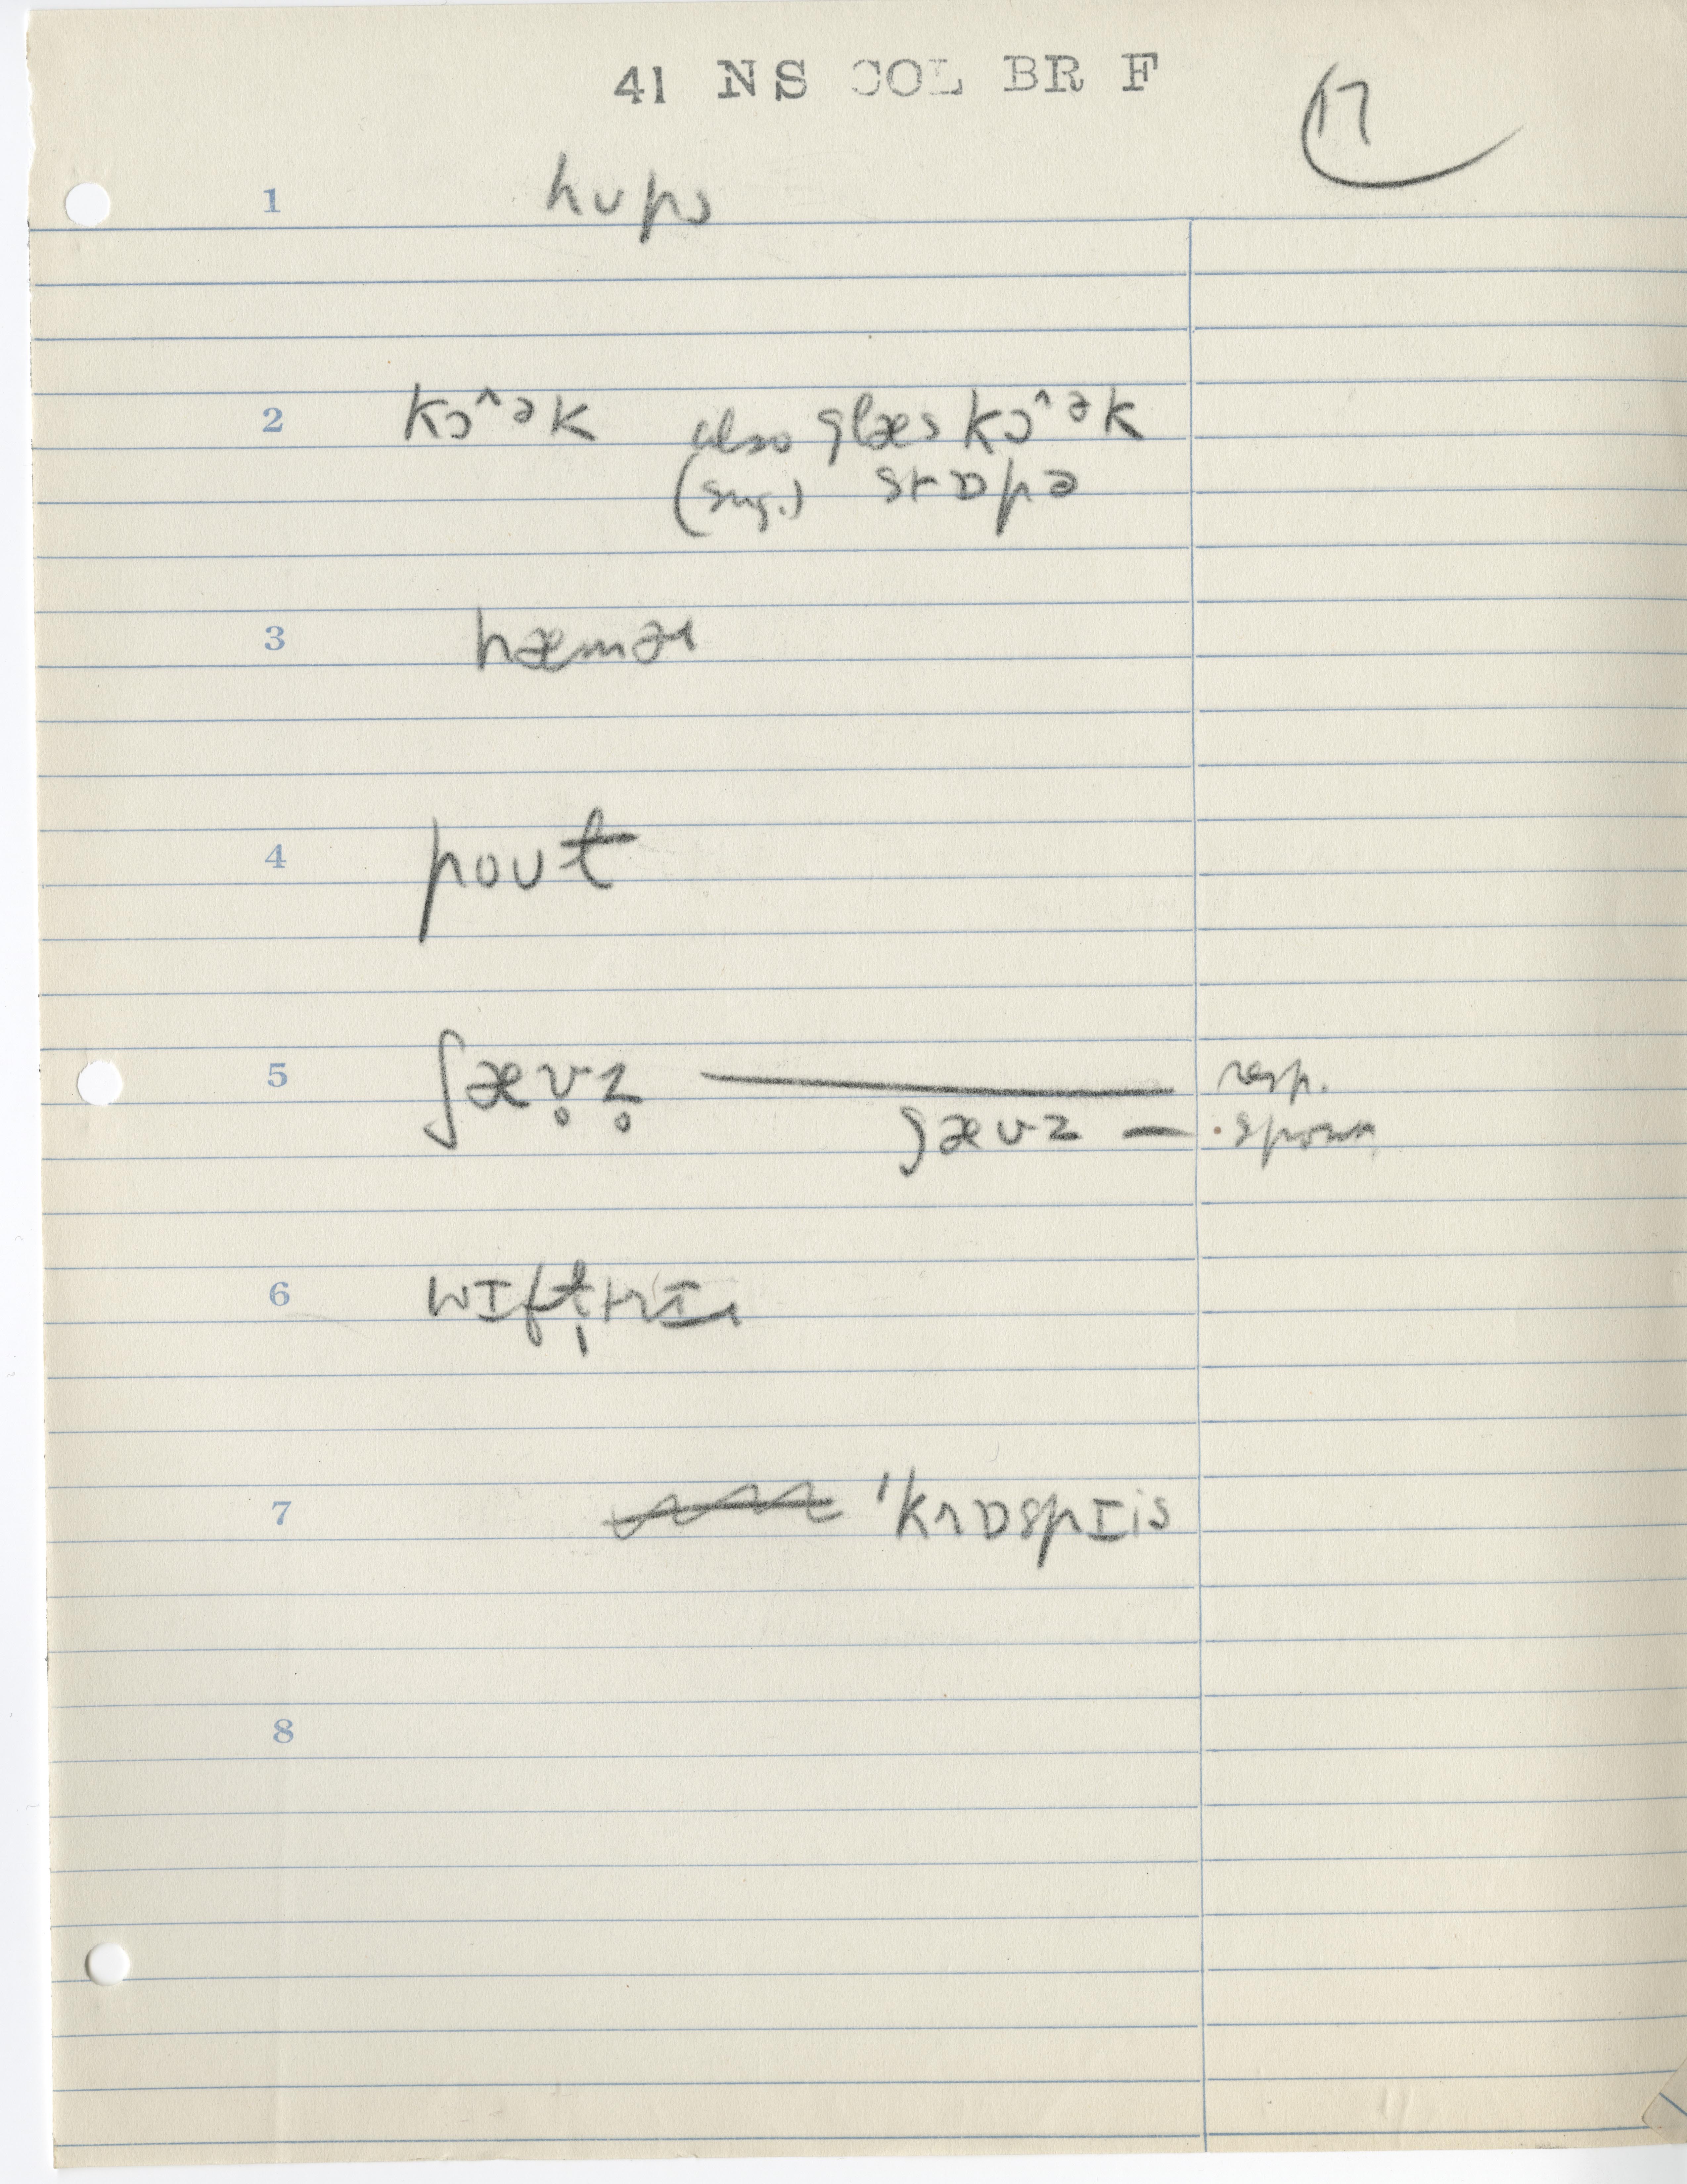 41 NS COL BR F
17
1 hups
2 kɔ^ək also glæs kɔ^ək
(sug.) stɒpə
3 hæmɚ
4 pout
5 ʃæv̥z̥ — resp.
ʃævz — spon.
6
7 'krɒspIis
8